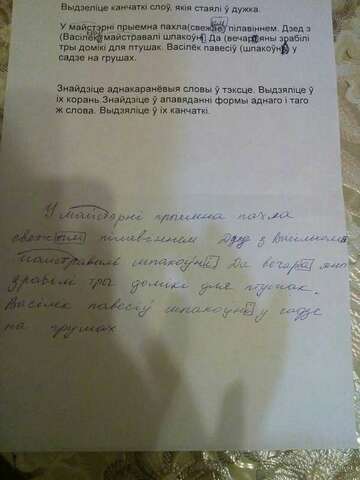 Выдзеліце канчаткі слоў, якія стаялі ў дужка.
У майстэрні прыемна пахла(свежым) пілавіннем. Дзед з
(Васілёк) майстравалі шпакоўні Да (вечара) яны зрабілі
тры домікі для птушак. Васілёк павесіў (шпакоўні) у
садзе на грушах.
Знайдзіце аднакаранёвыя словы ў тэксце. Выдзяліце ў
іх корань Знайдзіце ў апавяданні формы аднаго і таго
ж слова. Выдзяліце ў іх канчаткі.
У майстэрні прыемна пахла
свежым пілавіннем Дзед з Васільком
майстравалі шпакоўні Да вечара яны
зрабілі тры домікі для птушак.
Васілек павесіў шпакоўні у садзе
на грушах